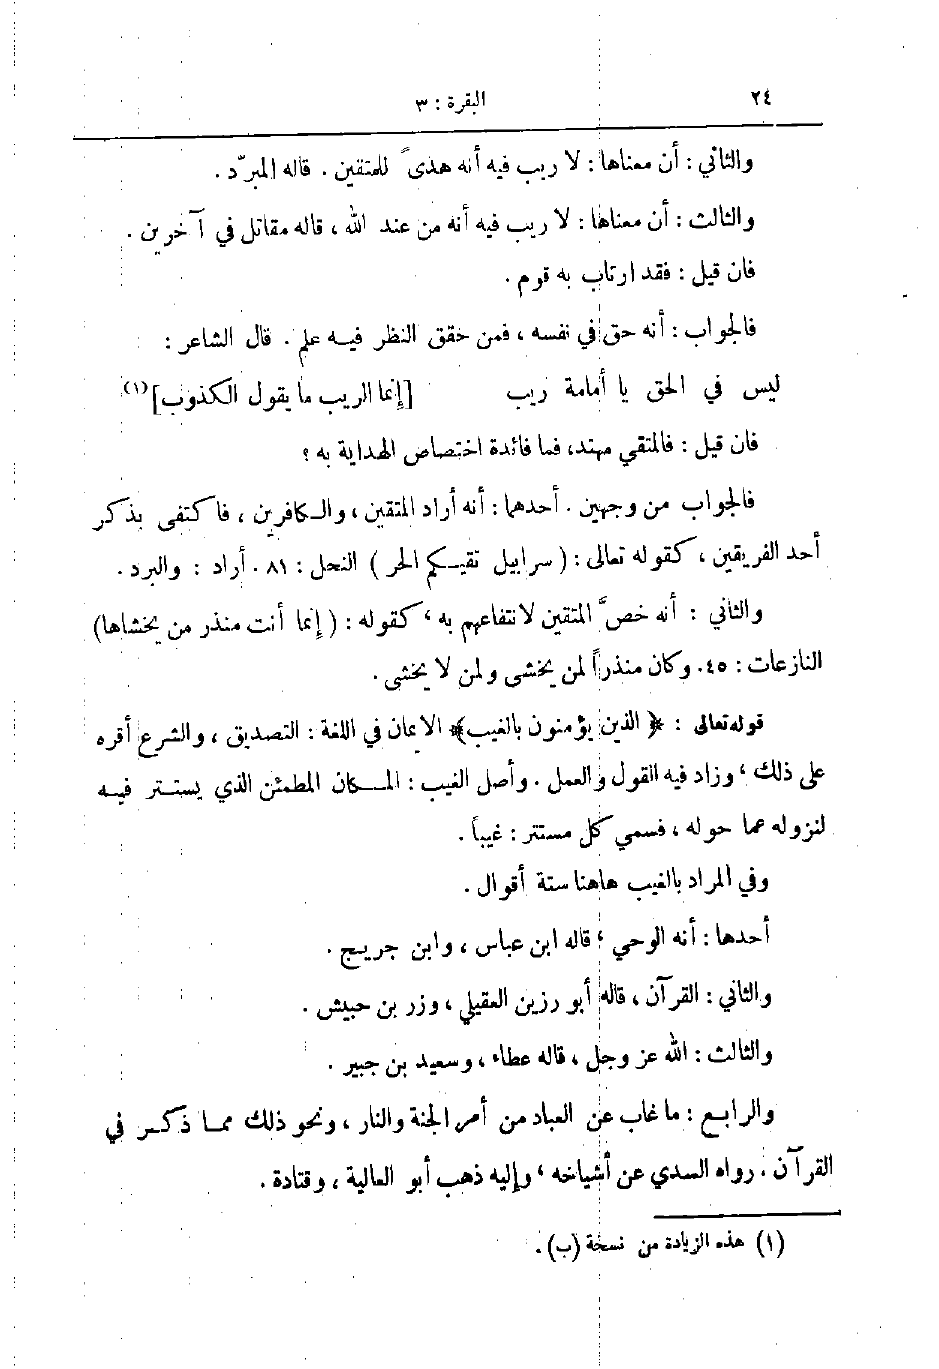 ٢٤
البقرة : ٣
والثاني : أن معناها : لا ريب فيه أنه هدىً للمتقين . قاله المبرّد .
والثالث : أن معناها : لا ريب فيه أنه من عند الله ، قاله مقاتل في آخرين .
فان قيل : فقد ارتاب به قوم .
فالجواب : أنه حق في نفسه ، فمن حقق النظر فيه علم . قال الشاعر :
ليس في الحق يا أمامة ريب [إنما الريب ما يقول الكذوب](١)
فان قيل : فالمتقي مهتد، فما فائدة اختصاص الهداية به ؟
فالجواب من وجهين . أحدهما : أنه أراد المتقين ، والكافرين ، فاكتفى بذكر
أحد الفريقين ، كقوله تعالى : ( سرابيل تقيكم الحر ) النحل : ٨١ . أراد : والبرد .
والثاني : أنه خصَّ المتقين لانتفاعهم به ، كقوله : ( إنما أنت منذر من يخشاها)
النازعات : ٤٥ . وكان منذراً لمن يخشى ولمن لا يخشى .
قوله تعالى : ﴿ الذين يؤمنون بالغيب﴾ الايمان في اللغة : التصديق ، والشرع أقره
على ذلك ، وزاد فيه القول والعمل . وأصل الغيب : المكان المطمئن الذي يستتر فيه
لنزوله عما حوله ، فسمي كل مستتر : غيباً .
وفي المراد بالغيب هاهنا ستة أقوال .
أحدها : أنه الوحي ، قاله ابن عباس ، وابن جريج .
والثاني : القرآن ، قاله أبو رزين العقيلي ، وزر بن حبيش .
والثالث : الله عز وجل ، قاله عطاء ، وسعيد بن جبير .
والرابع : ما غاب عن العباد من أمر الجنة والنار ، ونحو ذلك مما ذكر في
القرآن . رواه السدي عن أشياخه ، وإليه ذهب أبو العالية ، وقتادة .
(١) هذه الزيادة من نسخة (ب) .